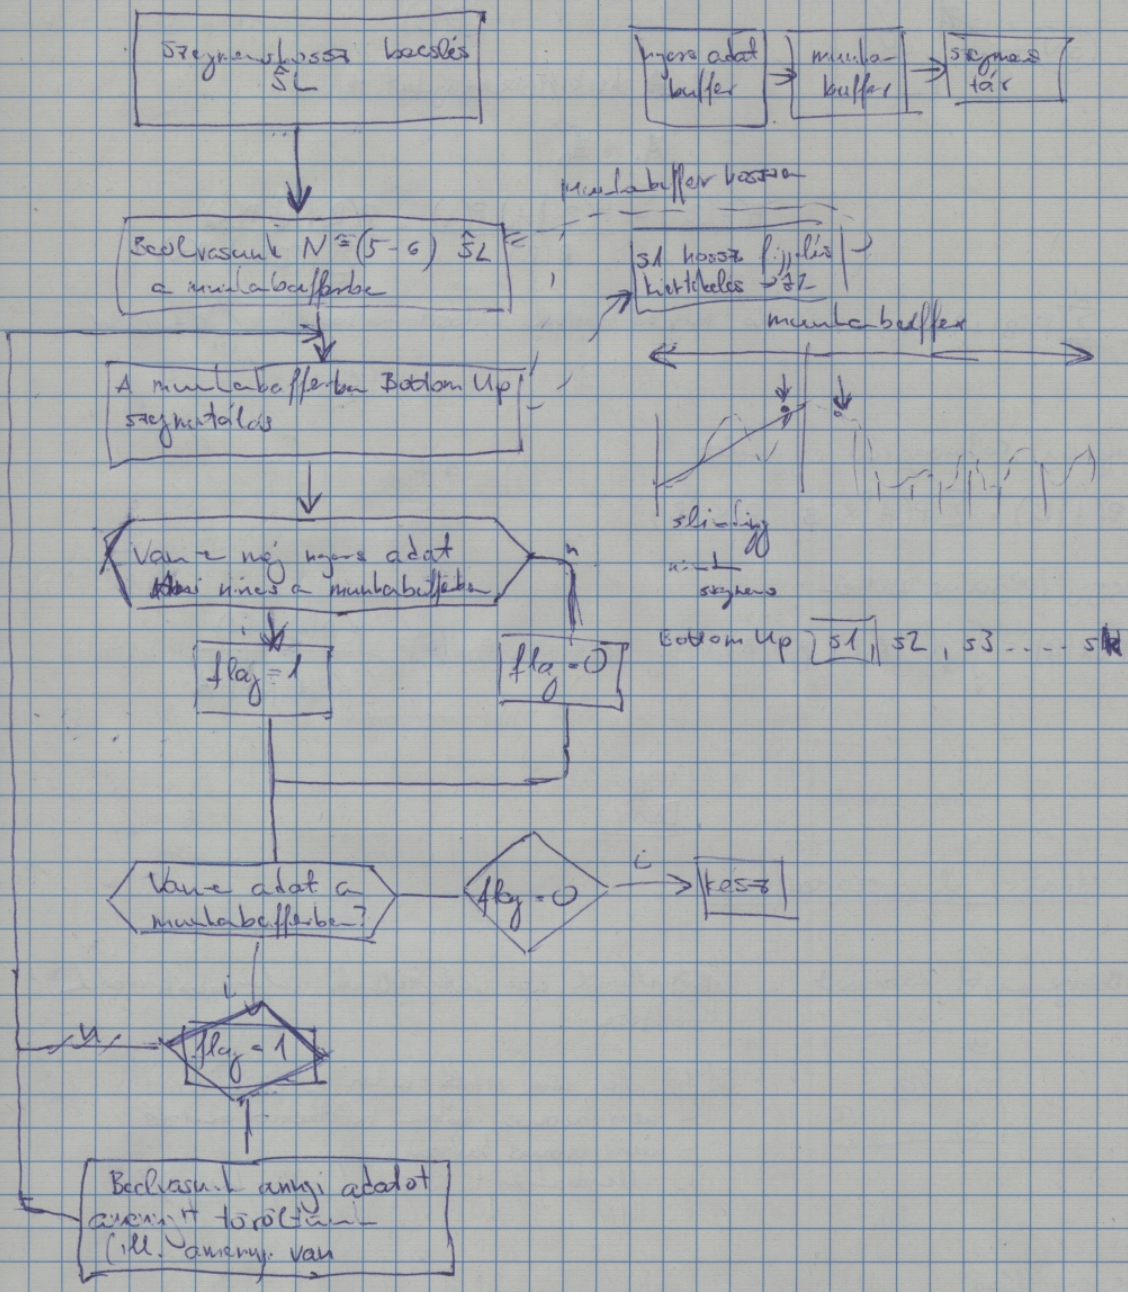 Szegmenshossz becslés
ŜL
nyers adat
buffer
munka-
buffer
szegmens
tár
Munkabuffer hossza
Beolvasunk N ≅ (5-6) ŜL
a munkabufferbe
s1 hossz figyelés
kiértékelés → ŜL
munkabuffer
A munkabufferben Bottom Up
szegmentálás
sliding
wind
szegmens
Van-e még nyers adat
Ami nincs a munkabufferben
n
i
flag = 1
flag = 0
Bottom Up s1, s2, s3 ..... sk
Van-e adat a
munkabufferben?
flag = 0
i
kész
i
flag = 1
n
Beolvasunk annyi adatot
amennyit töröltünk
(ill. amennyi van